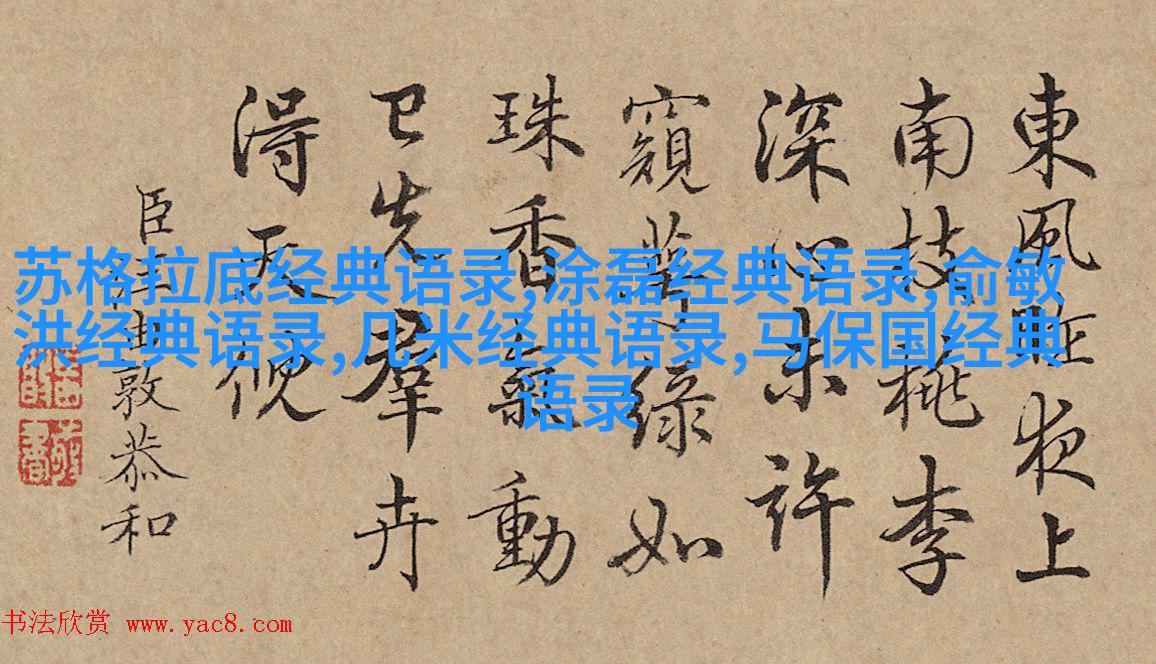 東風夜上
南枝桃李
深心未許
窺綠如
珠香動
已先羣卉
得天
臣汪由敦恭和
苏格拉底经典语录,涂磊经典语录,俞敏
洪经典语录,几米经典语录,马保国经典
语录
书法欣赏 www.yac8.com